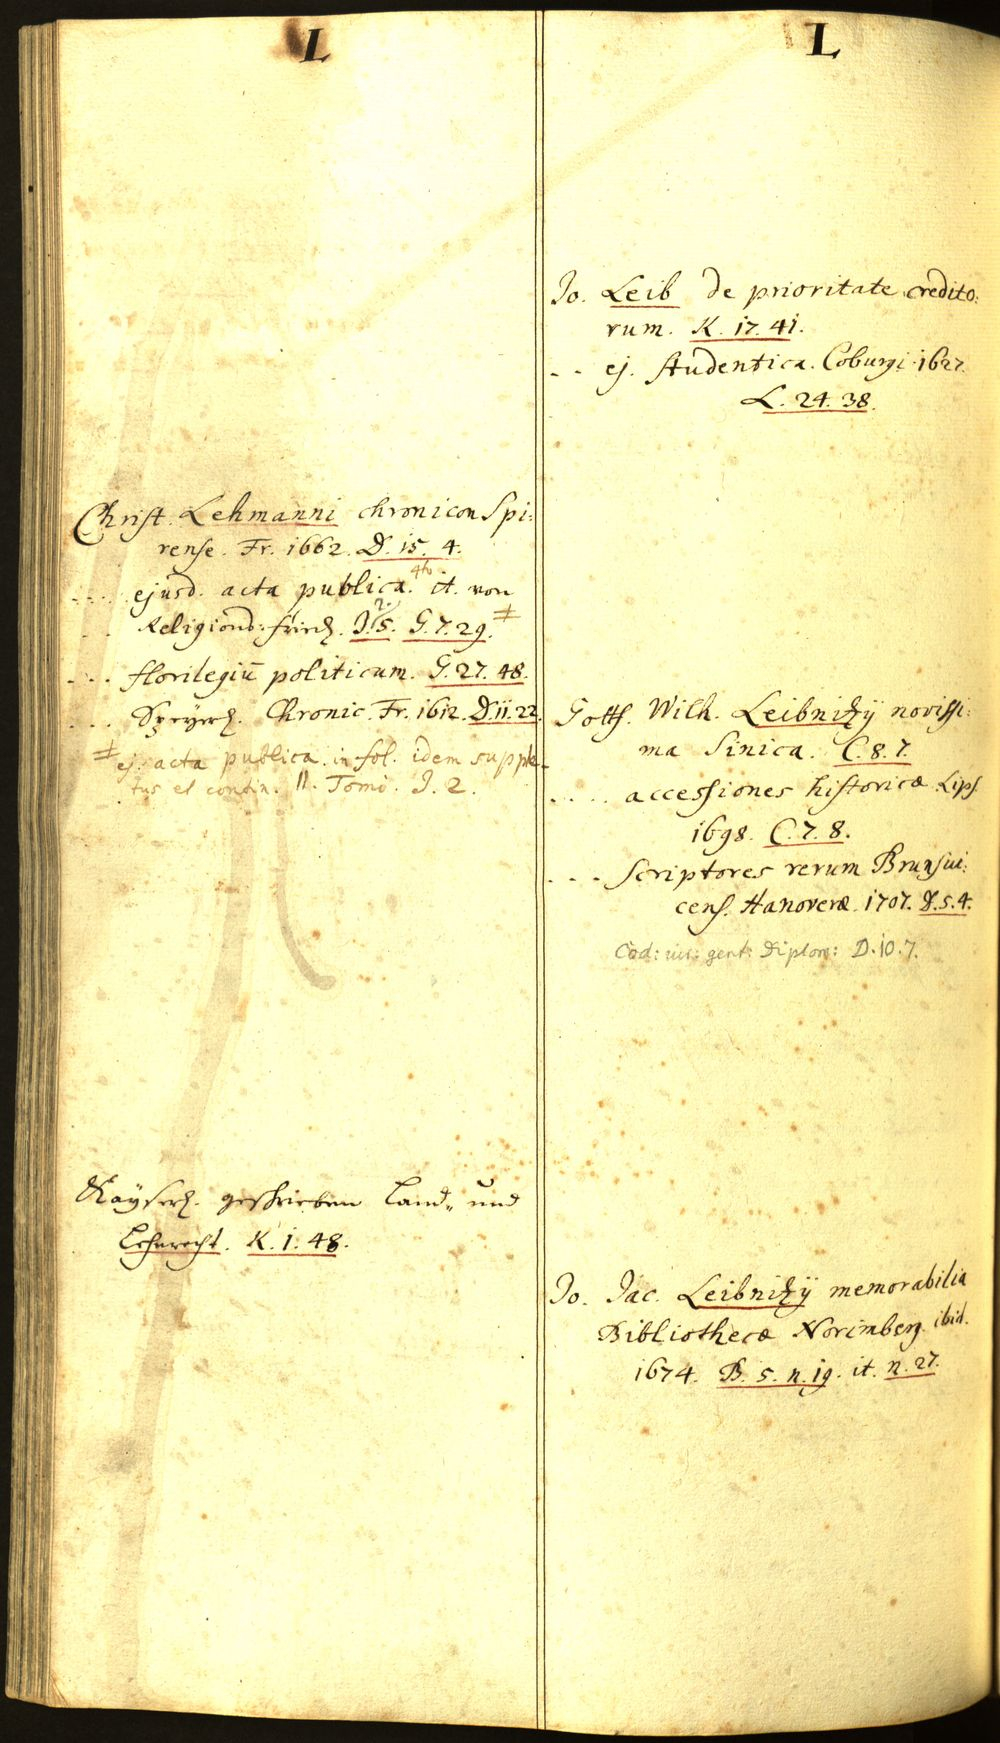 L
Christ. Lehmanni chronicon Spi:
rense. Fr. 1662. D. 15. 4.
.... ejusd. acta publica. 4to it. von
... Religions: fried. J. 5. 2. G. 7. 29. ‡
.... florilegiū politicum. G. 27. 48.
.... Speyer. Chronic. Fr. 1612. D. 11. 22.
‡ ej. acta publica. in fol. idem supple-
tus et contin. II. Tomi. J. 2.
Kayserl. geschrieben Land- und
Lehnrecht. K. 1. 48.
L
Jo. Leib de prioritate credito:
rum. K. 17. 41.
- - ej. Studentica. Coburgi. 1627.
L. 24. 38.
Gottf. Wilh. Leibnitzij novissi:
ma Sinica. C. 8. 7.
..... accessiones historicæ. Lips.
1698. C. 7. 8.
.... Scriptores rerum Brunsui:
cens. Hanoveræ. 1707. D. 5. 4.
Cod: iur: gent: Diplom: D. 10. 7.
Jo. Jac. Leibnitzij memorabilia
Bibliothecæ Norimberg. ibid.
1674. B. 5. n. 19. it. n. 27.